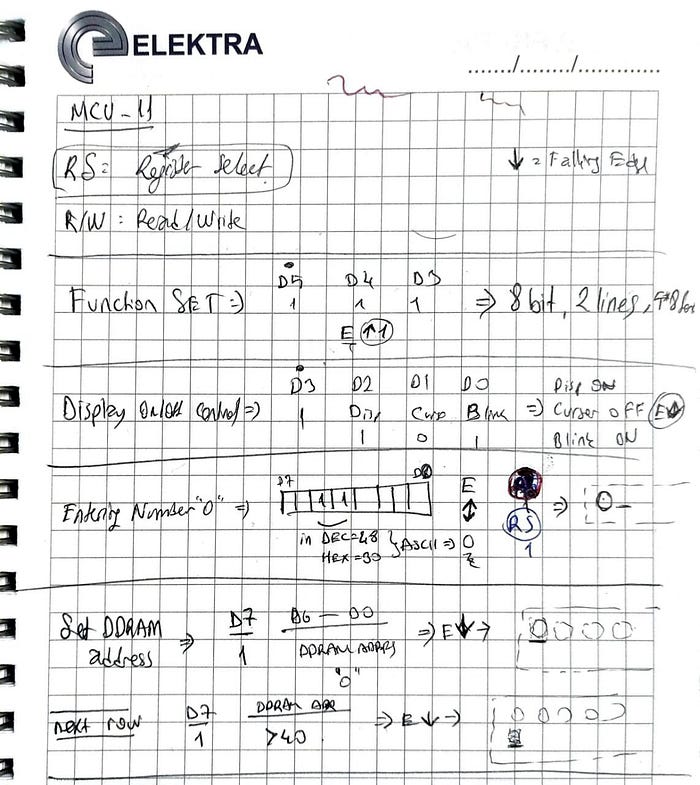 ELEKTRA
....../......./..............
MCU-11
RS= Register select
↓ = Falling Edge
R/W : Read/Write
D5 D4 D3
Function SET => 1 1 1 => 8 bit, 2 lines,
E ↑1
D3 D2 D1 D0 Disp ON
Display On/Off Control => 1 Disp Curs Blink => Curser OFF E↓
1 0 1 Blink ON
D7 D0 E
Entering Number "0" => 1 1 ↕ RS => 0_
in DEC=48 } ASCII => 0 1
Hex =30
Set DDRAM address => D7 D6 — D0 => E↓→ 0 0 0 0
1 DDRAM ADDRS
"0"
next row D7 DDRAM ADR => E↓→ 0 0 0 0
1 >40